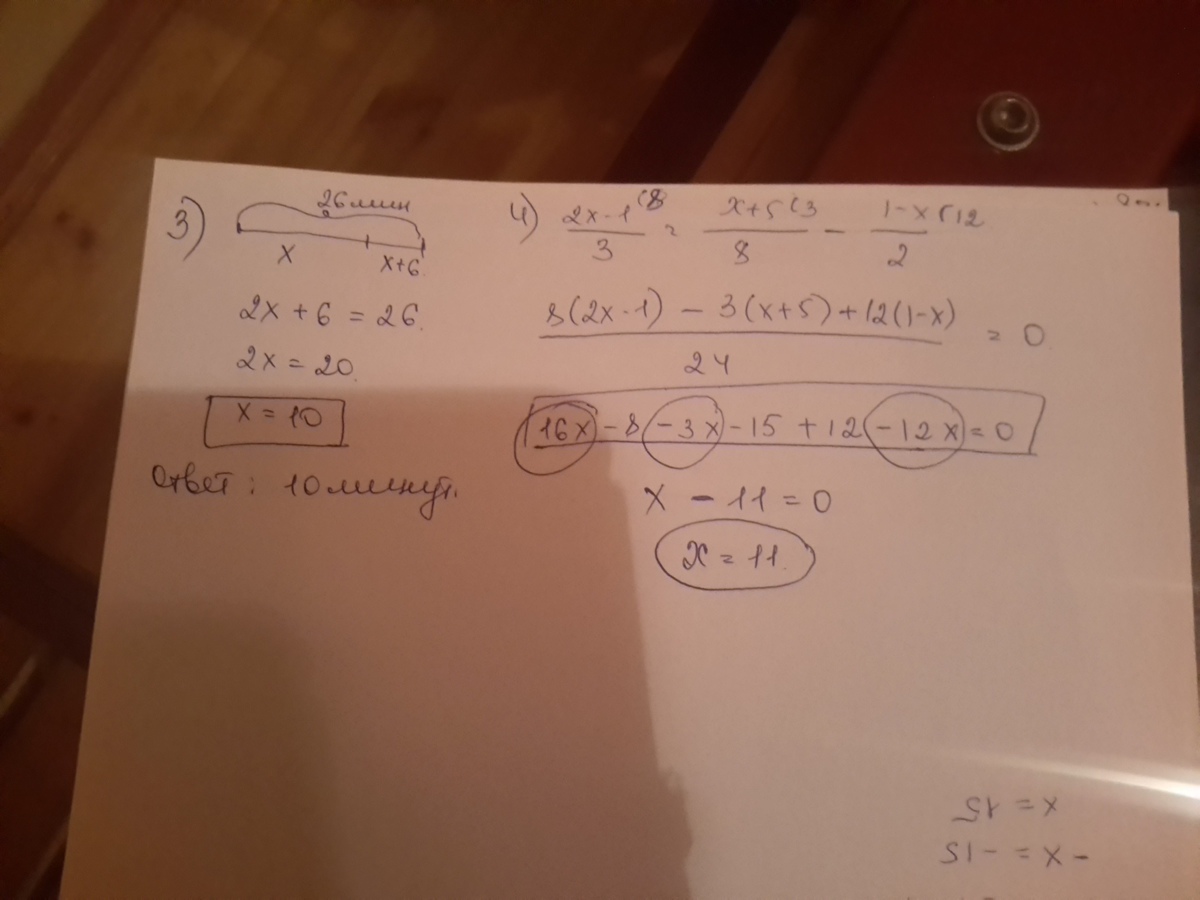 3) 26 мин
x x+6
2x + 6 = 26.
2x = 20.
x = 10
Ответ: 10 минут.
4) (2x-1)/3 (8 = (x+5)/8 (3 - (1-x)/2 (12
(8(2x-1) - 3(x+5) + 12(1-x))/24 = 0
16x - 8 - 3x - 15 + 12 - 12x = 0
x - 11 = 0
x = 11.
-x = -15
x = 15